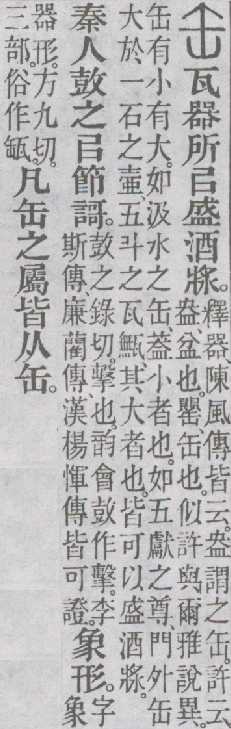 缶瓦器所㠯盛酒𤖅。釋器、陳風傳皆云。盎謂之缶。許云、
盎、盆也。罌、缶也。似許與爾雅說異。
缶有小有大。如汲水之缶、葢小者也。如五獻之尊、門外缶
大於一石之壷、五斗之瓦甒、其大者也。皆可以盛酒𤖅。
秦人鼔之㠯節謌。鼔之錄切、擊也。韵會鼔作擊。李
斯傳、廉藺傳、漢楊惲傳皆可證。象形。字
象
器形。方九切。
三部。俗作缻。凡缶之屬皆从缶。